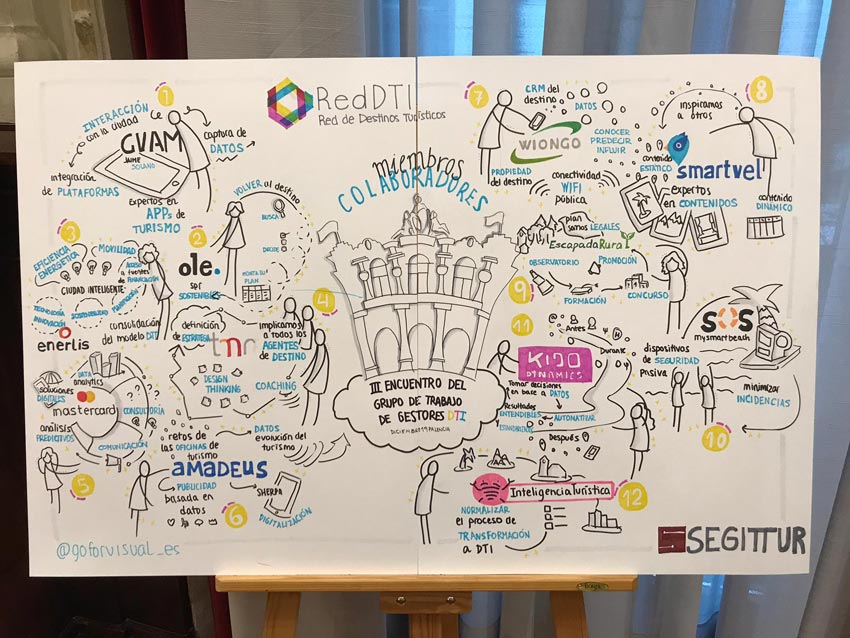 RedDTI
Red de Destinos Turísticos
miembros
COLABORADORES
III ENCUENTRO DEL
GRUPO DE TRABAJO
DE GESTORES DTI
DICIEMBRE 19 PALENCIA
1
INTERACCIÓN
con la ciudad
GVAM
JAIME
SOLANO
captura de
DATOS
integración
de PLATAFORMAS
expertos en
APPs de
TURISMO
2
VOLVER al destino
BUSCA
DECIDE
MONTA SU
PLAN
ole.
ser
SOSTENIBLES
3
EFICIENCIA
ENERGÉTICA
MOVILIDAD
Acceso
a fuentes
de FINANCIACIÓN
CIUDAD INTELIGENTE
TECNOLOGÍA
INNOVACIÓN
SOSTENIBILIDAD
PLANIFICACIÓN
enerlis
consolidación
del modelo DTI
4
definición
de ESTRATEGIA
tmn
implicamos
a todos los
AGENTES
de DESTINO
DESIGN
THINKING
COACHING
5
DATA
analytics
soluciones
DIGITALES
mastercard
CONSULTORÍA
análisis
PREDICTIVOS
COMUNICACIÓN
6
retos de
las OFICINAS de
turismo
DATOS
evolución del
turismo
amadeus
PUBLICIDAD
basada en
datos
SHERPA
DIGITALIZACIÓN
7
CRM del
destino
DATOS
WIONGO
CONOCER
PREDECIR
INFLUIR
PROPIEDAD
del destino
conectividad
WIFI
pública
8
inspiramos
a otros
contenido
ESTÁTICO
smartvel
expertos
en CONTENIDOS
contenido
DINÁMICO
9
plan
somos LEGALES
EscapadaRural
OBSERVATORIO
PROMOCIÓN
FORMACIÓN
CONCURSO
10
SOS
mysmartbeach
dispositivos
de SEGURIDAD
pasiva
minimizar
INCIDENCIAS
11
Antes
Durante
KIDO
DYNAMICS
Tomar decisiones
en base a DATOS
Resultados
ENTENDIBLES
ESTANDARIZAR
AUTOMATIZAR
Después
12
Inteligencia turística
NORMALIZAR
el proceso de
TRANSFORMACIÓN
a DTI
@goforvisual_es
SEGITTUR